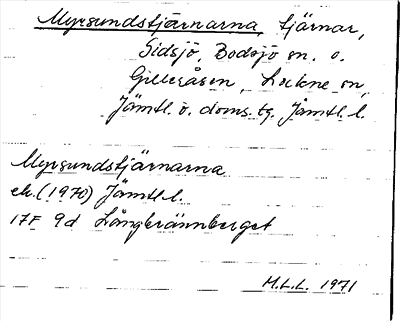 Myrsundstjärnarna, tjärnar,
Sidsjö, Bodsjö sn. o.
Gillesåsen, Lockne sn,
Jämtl. ö. doms. tg. Jämtl. l.
Myrsundstjärnarna
ek. (1970) Jämtl l.
17F 9d Långbrännberget
M.L.L. 1971